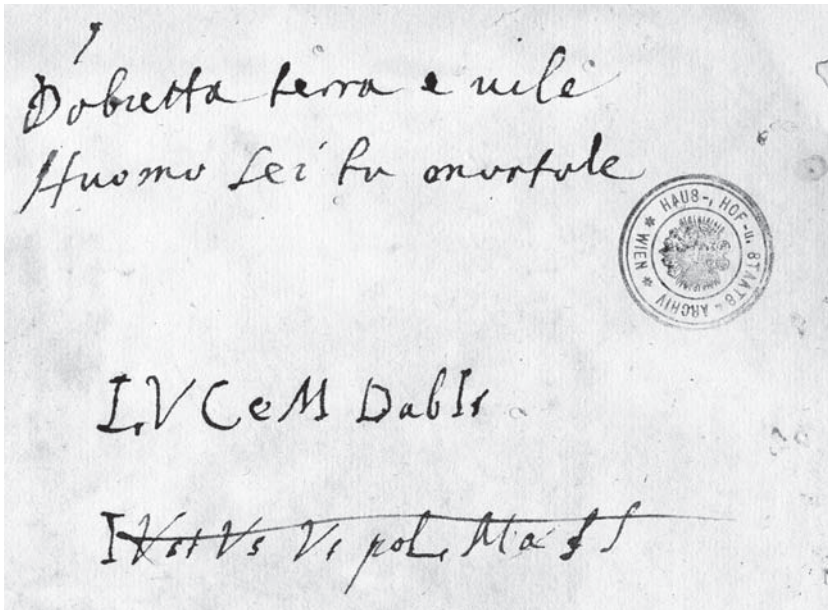 Dobietta terra e uile
Huomo sei tu mortale
HAUS-, HOF-U. STAATS-ARCHIV * WIEN *
LVCeM DabIs
IVstVs